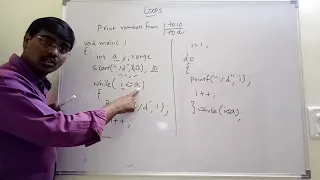 Loops
Print numbers from 1 to 10
1 to a
void main( )
{
int a, i, range
scanf("%d", &a), 10
while( i<=a)
{
/d", i);
i++;
i=1,
do
{
printf("/.d", i,
i++,
} while(i<a),